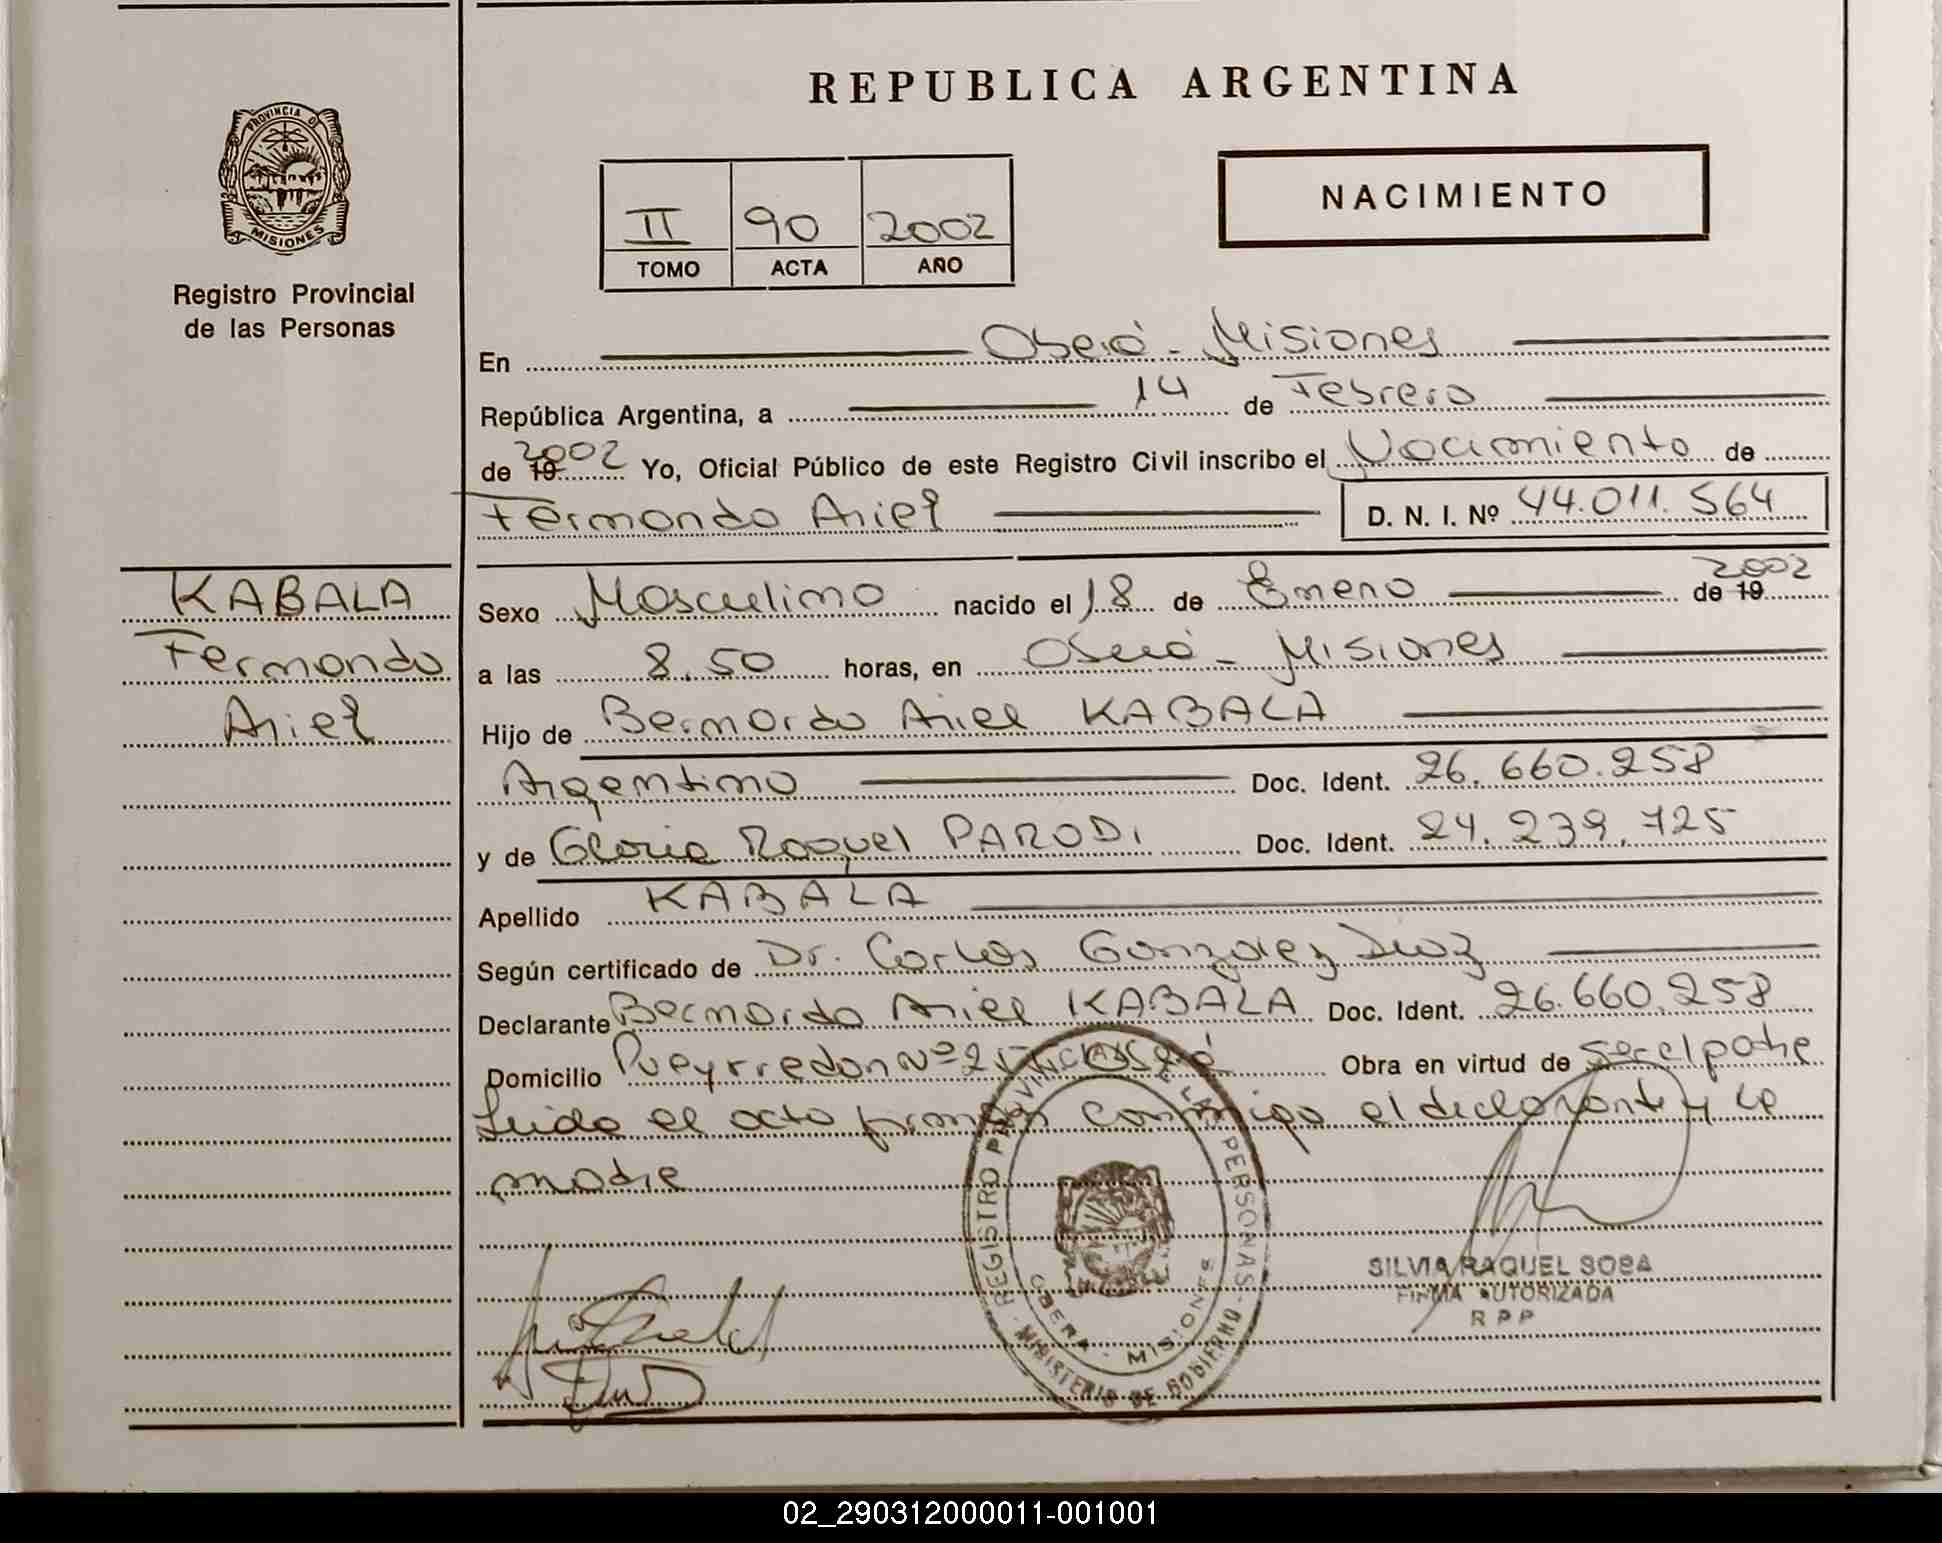 REPUBLICA ARGENTINA
PROVINCIA DE
MISIONES
Registro Provincial
de las Personas
NACIMIENTO
II 90 2002
TOMO ACTA AÑO
En Oberá - Misiones
República Argentina, a 14 de Febrero
de 19 2002 Yo, Oficial Público de este Registro Civil inscribo el Nacimiento de
Fernando Ariel D. N. I. Nº 44.011.564
KABALA
Fernando
Ariel
Sexo Masculino nacido el 18 de Enero de 19 2002
a las 8.50 horas, en Oberá - Misiones
Hijo de Bernardo Ariel KABALA
Argentino Doc. Ident. 26.660.258
y de Gloria Raquel PARODI Doc. Ident. 24.239.725
Apellido KABALA
Según certificado de Dr. Carlos Gonzalez Diaz
Declarante Bernardo Ariel KABALA Doc. Ident. 26.660.258
Domicilio Pueyrredon Nº Oberá Obra en virtud de ser el padre
Leida el acta firman conmigo el declarante y la
madre
REGISTRO PROVINCIAL DE LAS PERSONAS
MINISTERIO DE GOBIERNO
OBERA - MISIONES
SILVIA RAQUEL SOSA
FIRMA AUTORIZADA
R P P
02_290312000011-001001